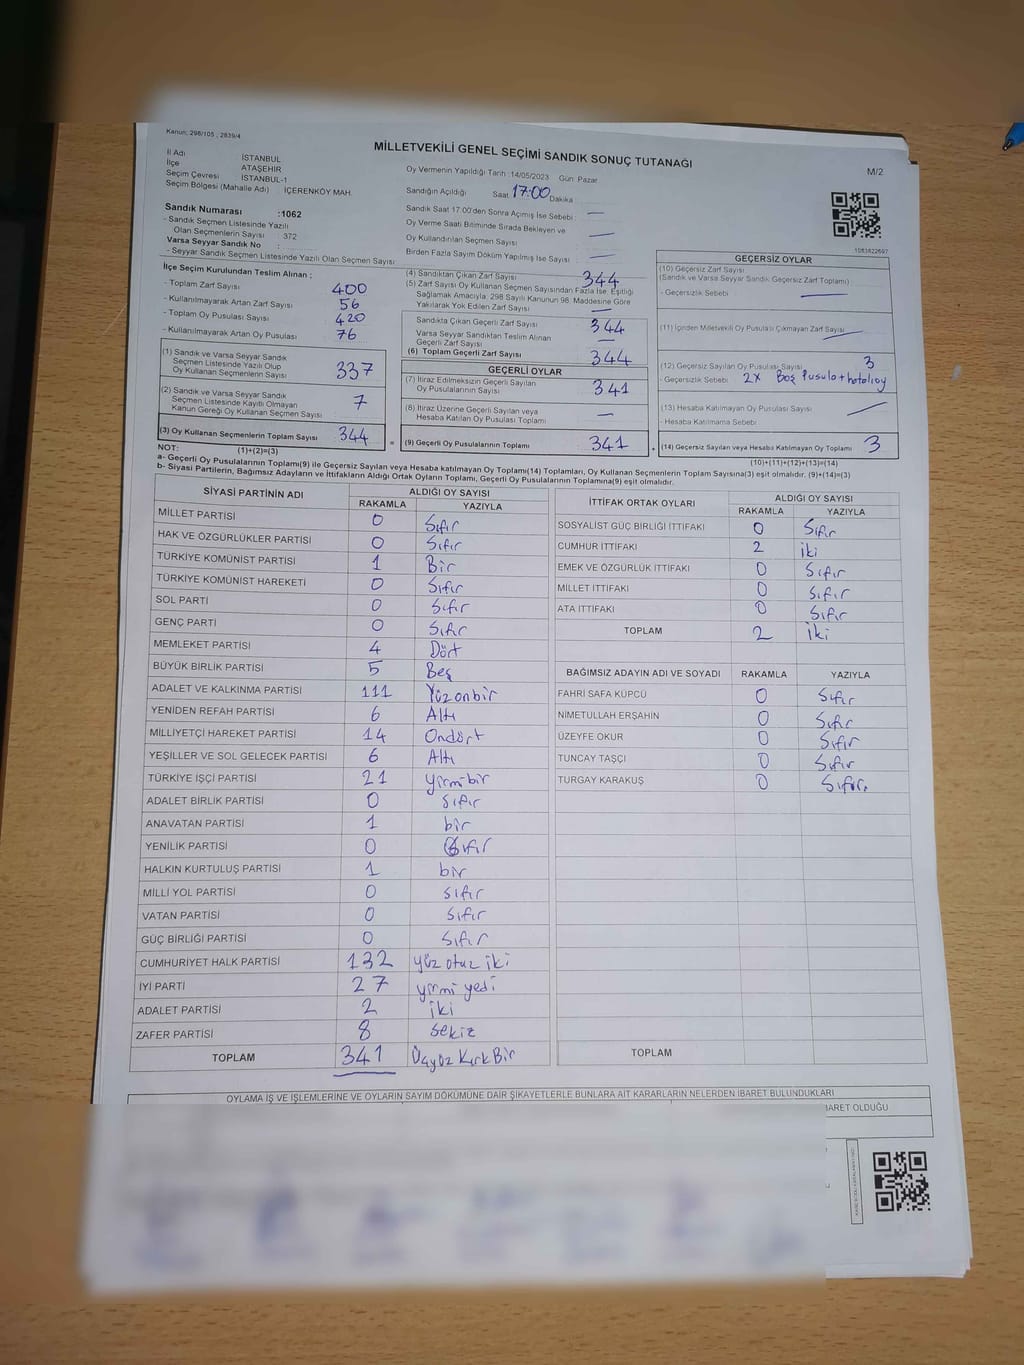 Kanun; 298/105 , 2839/4
MİLLETVEKİLİ GENEL SEÇİMİ SANDIK SONUÇ TUTANAĞI
M/2
İl Adı İSTANBUL
İlçe ATAŞEHİR
Seçim Çevresi İSTANBUL-1
Seçim Bölgesi (Mahalle Adı) İÇERENKÖY MAH.
Sandık Numarası :1062
- Sandık Seçmen Listesinde Yazılı
Olan Seçmenlerin Sayısı : 372
Varsa Seyyar Sandık No :
- Seyyar Sandık Seçmen Listesinde Yazılı Olan Seçmen Sayısı:
Oy Vermenin Yapıldığı Tarih :14/05/2023 Gün: Pazar
Sandığın Açıldığı Saat 17:00 Dakika
Sandık Saat 17.00'den Sonra Açılmış İse Sebebi : —
Oy Verme Saati Bitiminde Sırada Bekleyen ve
Oy Kullandırılan Seçmen Sayısı —
Birden Fazla Sayım Döküm Yapılmış İse Sayısı : —
1083822697
İlçe Seçim Kurulundan Teslim Alınan ;
- Toplam Zarf Sayısı 400
- Kullanılmayarak Artan Zarf Sayısı 56
- Toplam Oy Pusulası Sayısı 420
- Kullanılmayarak Artan Oy Pusulası 76
(1) Sandık ve Varsa Seyyar Sandık
Seçmen Listesinde Yazılı Olup
Oy Kullanan Seçmenlerin Sayısı 337
(2) Sandık ve Varsa Seyyar Sandık
Seçmen Listesinde Kayıtlı Olmayan
Kanun Gereği Oy Kullanan Seçmen Sayısı 7
(3) Oy Kullanan Seçmenlerin Toplam Sayısı 344
(1)+(2)=(3)
(4) Sandıktan Çıkan Zarf Sayısı 344
(5) Zarf Sayısı Oy Kullanan Seçmen Sayısından Fazla İse, Eşitliği
Sağlamak Amacıyla; 298 Sayılı Kanunun 98. Maddesine Göre
Yakılarak Yok Edilen Zarf Sayısı —
Sandıkta Çıkan Geçerli Zarf Sayısı 344
Varsa Seyyar Sandıktan Teslim Alınan
Geçerli Zarf Sayısı —
(6) Toplam Geçerli Zarf Sayısı 344
GEÇERLİ OYLAR
(7) İtiraz Edilmeksizin Geçerli Sayılan
Oy Pusulalarının Sayısı 341
(8) İtiraz Üzerine Geçerli Sayılan veya
Hesaba Katılan Oy Pusulası Toplamı —
= (9) Geçerli Oy Pusulalarının Toplamı 341
GEÇERSİZ OYLAR
(10) Geçersiz Zarf Sayısı
(Sandık ve Varsa Seyyar Sandık Geçersiz Zarf Toplamı)
- Geçersizlik Sebebi : —
(11) İçinden Milletvekili Oy Pusulası Çıkmayan Zarf Sayısı —
(12) Geçersiz Sayılan Oy Pusulası Sayısı 3
- Geçersizlik Sebebi : 2x Boş Pusula + hatalıoy
(13) Hesaba Katılmayan Oy Pusulası Sayısı —
- Hesaba Katılmama Sebebi :
+ (14) Geçersiz Sayılan veya Hesaba Katılmayan Oy Toplamı 3
(10)+(11)+(12)+(13)=(14)
NOT:
a- Geçerli Oy Pusulalarının Toplamı(9) ile Geçersiz Sayılan veya Hesaba katılmayan Oy Toplamı(14) Toplamları, Oy Kullanan Seçmenlerin Toplam Sayısına(3) eşit olmalıdır. (9)+(14)=(3)
b- Siyasi Partilerin, Bağımsız Adayların ve İttifakların Aldığı Ortak Oyların Toplamı, Geçerli Oy Pusulalarının Toplamına(9) eşit olmalıdır.
SİYASİ PARTİNİN ADI ALDIĞI OY SAYISI
RAKAMLA YAZIYLA
MİLLET PARTİSİ 0 Sıfır
HAK VE ÖZGÜRLÜKLER PARTİSİ 0 Sıfır
TÜRKİYE KOMÜNİST PARTİSİ 1 Bir
TÜRKİYE KOMÜNİST HAREKETİ 0 Sıfır
SOL PARTİ 0 Sıfır
GENÇ PARTİ 0 Sıfır
MEMLEKET PARTİSİ 4 Dört
BÜYÜK BİRLİK PARTİSİ 5 Beş
ADALET VE KALKINMA PARTİSİ 111 Yüzonbir
YENİDEN REFAH PARTİSİ 6 Altı
MİLLİYETÇİ HAREKET PARTİSİ 14 Ondört
YEŞİLLER VE SOL GELECEK PARTİSİ 6 Altı
TÜRKİYE İŞÇİ PARTİSİ 21 yirmibir
ADALET BİRLİK PARTİSİ 0 sıfır
ANAVATAN PARTİSİ 1 bir
YENİLİK PARTİSİ 0 Sıfır
HALKIN KURTULUŞ PARTİSİ 1 bir
MİLLİ YOL PARTİSİ 0 sıfır
VATAN PARTİSİ 0 Sıfır
GÜÇ BİRLİĞİ PARTİSİ 0 Sıfır
CUMHURİYET HALK PARTİSİ 132 yüz otuz iki
İYİ PARTİ 27 yirmi yedi
ADALET PARTİSİ 2 iki
ZAFER PARTİSİ 8 sekiz
TOPLAM 341 Üçyüz Kırk Bir
İTTİFAK ORTAK OYLARI ALDIĞI OY SAYISI
RAKAMLA YAZIYLA
SOSYALİST GÜÇ BİRLİĞİ İTTİFAKI 0 Sıfır
CUMHUR İTTİFAKI 2 iki
EMEK VE ÖZGÜRLÜK İTTİFAKI 0 Sıfır
MİLLET İTTİFAKI 0 Sıfır
ATA İTTİFAKI 0 Sıfır
TOPLAM 2 iki
BAĞIMSIZ ADAYIN ADI VE SOYADI RAKAMLA YAZIYLA
FAHRİ SAFA KÜPCÜ 0 Sıfır
NİMETULLAH ERŞAHİN 0 Sıfır
ÜZEYFE OKUR 0 Sıfır
TUNCAY TAŞÇI 0 Sıfır
TURGAY KARAKUŞ 0 Sıfır.
TOPLAM
OYLAMA İŞ VE İŞLEMLERİNE VE OYLARIN SAYIM DÖKÜMÜNE DAİR ŞİKAYETLERLE BUNLARA AİT KARARLARIN NELERDEN İBARET BULUNDUKLARI
İBARET OLDUĞU